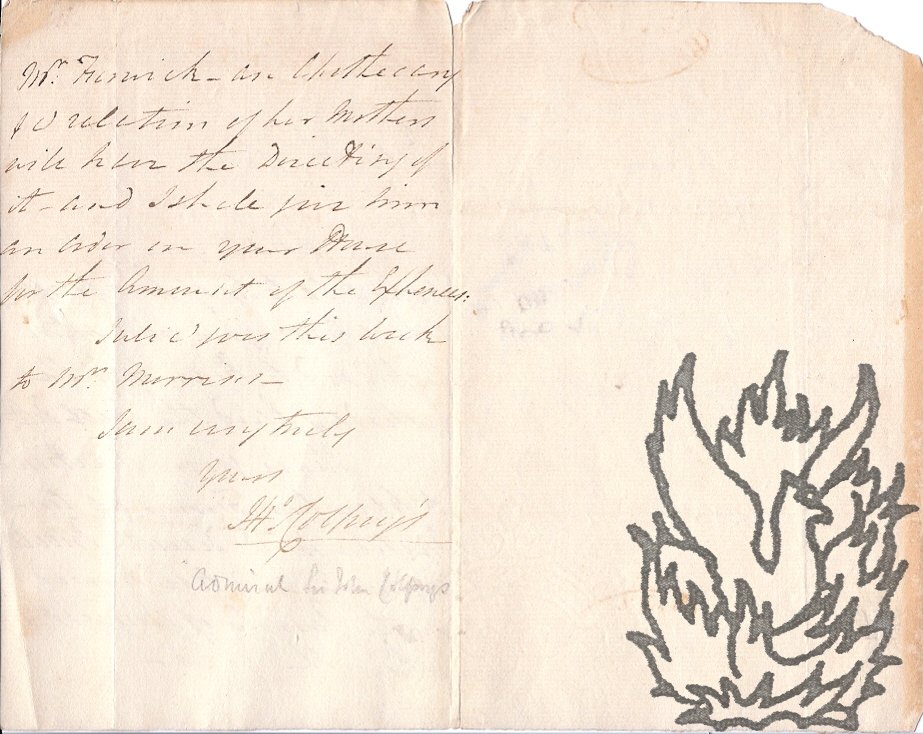 Mr. Fenwick - an Apothecary
& a relation of her Mothers
will have the Directing of
it - and I shall give him
an Order on your House
for the Amount of the Expences.
Julia goes this back
to Mrs.
I am very truly
Yours
Jno. Colpoys
Admiral Sir John Colpoys